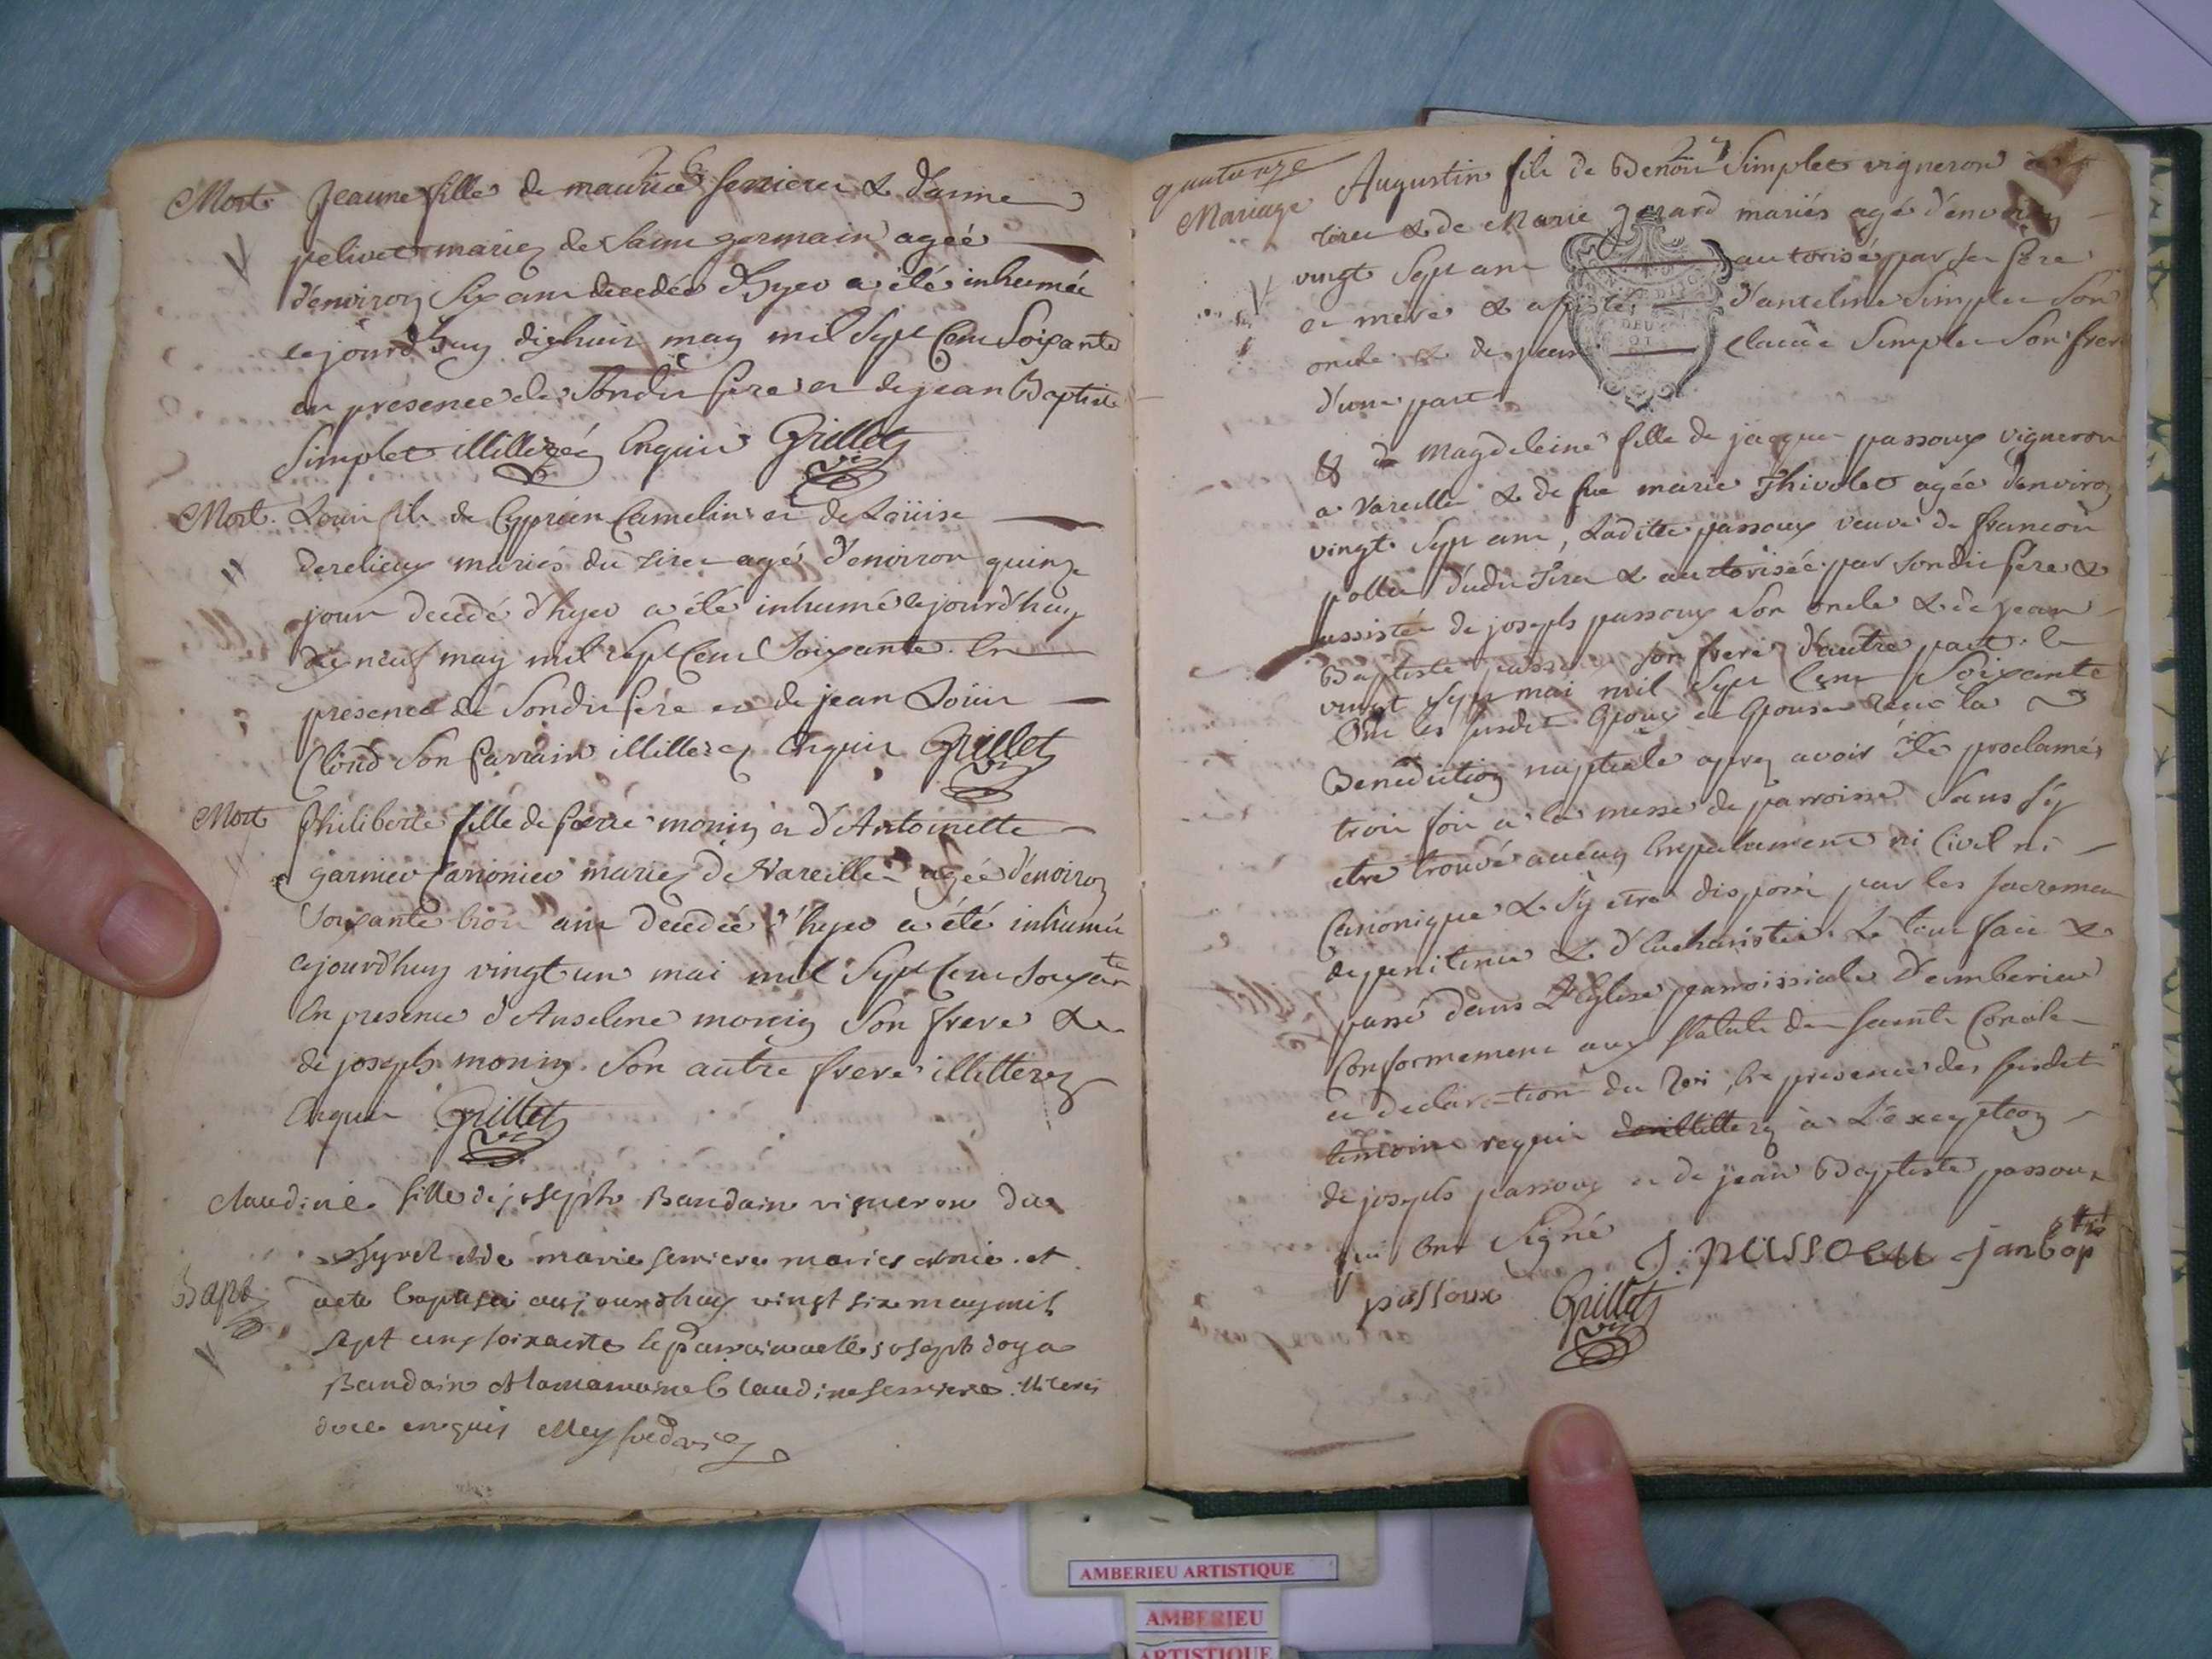 26
Mort. Jeanne fille de maurice serriere & d'anne
pelivet mariez de saint germain agée
d'environ six ans decedée d'hyer a été inhumée
cejourd'huy dixhuit may mil sept cent soixante
en presence de sondit pere et de jean Baptiste
Simplet illitterés Enquis Grillet vic
Mort. Louis fils de Cyprien Camelin et de Loüise
derelieux mariés du tiret agé d'environ quinze
jours decedé d'hyer a été inhumé cejourd'huy
dix neuf may mil sept Cent Soixante. En
presence de Sondit pere et de jean Loüis
Cloud son parrain illitterez Enquis Grillet vic
Mort Philiberte fille de pierre monin et d'Antoinette
garnier mariez de Vareille agée d'environ
Soixante trois ans decedée d'hyer a été inhumée
cejourd'huy vingt un mai mil Sept Cent Soixante
En presence d'Anselme monin Son frere &
de joseph monin Son autre frere illitterez
Enquis Grillet vic
Claudine fille de joseph Baudain vigneron du
tyret et de marie serriere maries est née et
Bapt
aete baptisée aujourdhuy vingt six may mil
sept cens soixante le parrain aeté joseph
Baudain et la maraine Claudine serriere illiteres
enquis
27
quatorze
Mariage
Augustin fils de Benoit Simplet vigneron
tiret & de Marie gerard mariés agé d'environ
vingt Sept ans autorisé par ses pere
et mere & assisté d'anselme Simplet Son
oncle & de jean Claude Simplet Son frere
d'une part
& de Magdeleine fille de jacques passoux vigneron
a Vareille & de fue marie Thivolet agée d'environ
vingt Sept ans, Ladite passoux veuve de francois
pollet dudit tiret & autorisée par sondit pere &
assistée de joseph passoux Son oncle & de jean
Baptiste passoux son frere d'autre part. le
vingt Sept mai mil Sept Cent Soixante
Ont les susdits Epoux et Epouse reçu la
Benediction nuptiale aprez avoir été proclamés
trois fois a la messe de parroisse sans s'y
etre trouvé aucun Empechement ni Civil ni
Canonique & s'y etre disposés par les sacremens
de penitence & d'Eucharistie. Le tout fait &
passé dans L'Eglise parroissiale d'amberieu
Conformement aux statuts du saint Concile
et declaration du Roi, En presence des susdits
temoins requis illitterez à L'exception
de joseph passoux et de jean Baptiste passoux
qui ont Signé J. passoux janbaptis
passoux Grillet vic
AMBERIEU ARTISTIQUE
AMBERIEU
ARTISTIQUE